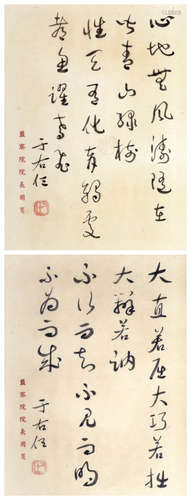 心地無風濤隨在
皆青山綠樹
性天有化育觸處
都魚躍鳶飛
于右任
監察院院長用箋
大直若屈大巧若拙
大辯若訥
不行而知不見而明
不為而成
于右任
監察院院長用箋